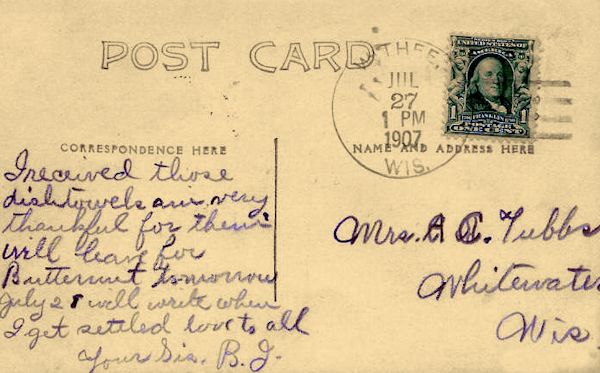 POST CARD
JUL
27
1 PM
1907
WIS.
SERIES 1902
UNITED STATES OF AMERICA
1 FRANKLIN 1
POSTAGE
ONE CENT
CORRESPONDENCE HERE
NAME AND ADDRESS HERE
I received those
dishtowels am very
thankful for them
will leave for
Butternut tomorrow
July 28 will write when
I get settled love to all
Your Sis. B. J.
Mrs. A. C. Tubbs
Whitewater
Wis.